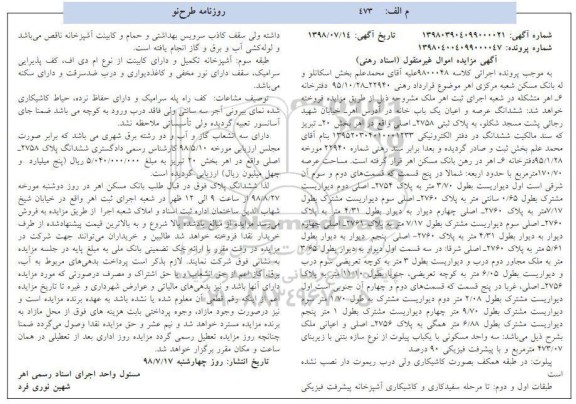 م الف: ۴۷۳
روزنامه طرح‌نو
شماره آگهی: ۱۳۹۸۰۳۹۰۴۰۹۹۰۰۰۰۲۱ تاریخ آگهی: ۱۳۹۸/۰۷/۱۴
شماره پرونده: ۱۳۹۸۰۴۰۰۴۰۹۹۰۰۰۰۴۷
آگهی مزایده اموال غیرمنقول (اسناد رهنی)
به موجب پرونده اجرائی کلاسه ۹۸۰۰۰۴۸ علیه آقای محمدعلم بخش اسکانلو و
له بانک مسکن شعبه مرکزی اهر موضوع قرارداد رهنی ۲۲۹۴۰ـ۹۵/۱۰/۲۸ دفترخانه
۶ـ اهر متشکله در شعبه اجرای ثبت اهر ملک مشروحه ذیل از طریق مزایده فروخته
خواهد شد: ششدانگ عرصه و اعیان یک باب خانه به آدرس اهر ـ خیابان شهید
رجائی پشت مسجد
که سند مالکیت ششدانگ در دفتر الکترونیکی ۱۳۹۵۲۰۳۰۴۰۱۰۰۰۶۲۳۳ بنام آقای
محمد علم بخش ثبت و صادر گردیده و بعدا برابر سند رهنی شماره ۲۲۹۴۰ مورخه
۹۵/۱۰/۲۸ دفترخانه ۶ـ اهر در رهن بانک مسکن اهر قرار گرفته است. مساحت عرصه
۱۷۰/۷۰ مترمربع با حدود اربعه: شمالا در پنج قسمت که قسمت‌های دوم و سوم آن
شرقی است اول دیواریست بطول ۳/۷۰ متر به پلاک ۲۷۵۴ـ اصلی دوم دیواریست
مشترک بطول ۰/۶۵ سانتی متر به پلاک ۲۷۶۰ـ اصلی سوم دیواریست مشترک بطول
۷/۱۷ متر به پلاک ۲۷۶۰ـ اصلی چهارم دیوار به دیوار بطول ۴/۳۱ متر به پلاک
۲۷۶۰ـ اصلی
دیوار به دیوار بطول ۴/۳۱ متر به پلاک ۲۷۶۰ـ اصلی
۵/۶۱ متر به پلاک ۲۷۶۰ـ اصلی شرقا: در سه قسمت اول دیوار به دیوار بطول
متر به ملک مجاور دوم درب و دیواریست بطول ۳ متر به کوچه تعریضی سوم درب
و دیواریست بطول ۶/۰۵ متر به کوچه تعریضی، جنوبا: بطول ۱۰/۱۱ متر به پلاک
۲۷۵۶ـ اصلی، غربا: در پنج قسمت که قسمت‌های دوم و چهارم آن جنوبی است اول
دیواریست مشترک بطول ۲/۰۸ متر دوم دیواریست مشترک بطول ۰/۷۰ متر سوم
دیواریست مشترک بطول ۹/۷۰ متر چهارم دیواریست مشترک بطول ۱ متر پنجم
دیواریست مشترک بطول ۶/۸۸ متر همگی به پلاک ۲۷۵۶ـ اصلی و اعیانی ملک
بشرح ذیل می‌باشد: سه واحد مسکونی با یکباب پیلوت از نوع سازه بتنی با زیربنای
۴۷۳/۰۷ مترمربع و با پیشرفت فیزیکی ۹۰ درصد
پیلوت: در طبقه همکف بصورت کاشیکاری ولی درب ریموت دار نصب نشده
است
طبقات اول و دوم: تا مرحله سفیدکاری و کاشیکاری آشپزخانه پیشرفت فیزیکی
داشته ولی سقف کاذب سرویس بهداشتی و حمام و کابینت آشپزخانه ناقص می‌باشد
و لوله‌کشی آب و برق و گاز انجام یافته است.
طبقه سوم: آشپزخانه تکمیل و دارای کابینت از نوع ام دی اف، کف پذیرایی
سرامیک، سقف دارای نور مخفی و کاغذدیواری و درب ضدسرقت و دارای سکنه
می‌باشد.
توصیف مشاعات: کف راه پله سرامیک و دارای حفاظ نرده، حیاط کاشیکاری
شده نمای بیرونی آجر سه سانتی ولی فاقد درب ورودی به کوچه می باشد ضمنا جای
آسانسور تعبیه گردیده ولی تأسیساتی ملاحظه نشد.
دارای سه انشعاب گاز و آب و برق در رشته برق شهری می باشد که برابر صورت
مجلس ارزیابی مورخه ۹۸/۵/۱۰ کارشناس رسمی دادگستری ششدانگ پلاک ۲۷۵۸ـ
اصلی واقع در اهر بخش ۲۰ تبریز به مبلغ ۵/۰۴۰/۰۰۰/۰۰۰ ریال (پنج میلیارد و
چهل میلیون ریال) ارزیابی گردیده است.
لذا ششدانگ پلاک فوق در قبال طلب بانک مسکن اهر در روز دوشنبه مورخه
۹۸/۸/۲۷ از ساعت ۹ الی ۱۲ ظهر در شعبه اجرای ثبت اهر واقع در خیابان شیخ
شهاب الدین ساختمان اداره ثبت اسناد و املاک شعبه اجرا از طریق مزایده به فروش
می‌رسد مزایده از مبلغ ارزیابی شده بالا شروع و به بالاترین قیمت پیشنهادی از طرف
خریدار نقدا فروخته خواهد شد. طالبین و خریداران می‌توانند جهت شرکت در
مزایده در وقت مقرر با ارائه چک تضمینی بانک ملی به مبلغ پایه در جلسه مزایده
پیشنهادی فوق شرکت نمایند. لازم بذکر است پرداخت بدهی‌های مربوط به آب،
برق، گاز اعم از حق انشعاب و یا حق اشتراک و مصرف درصورتی که مورد مزایده
دارای آنها باشد و نیز بدهی‌های مالیاتی و عوارض شهرداری و غیره تا تاریخ مزایده
اعم از اینکه رقم قطعی آن معلوم شده یا نشده باشد به عهده برنده مزایده است و
نیز درصورت وجود مازاد، وجوه پرداختی بابت هزینه های فوق از محل مازاد به
برنده مزایده مسترد خواهد شد و نیم عشر و حق مزایده نقدا وصول می‌گردد ضمنا
چنانچه روز مزایده تعطیل رسمی گردد مزایده روز اداری بعد از تعطیلی در همان
ساعت و مکان مقرر برگزار خواهد شد.
تاریخ انتشار: روز چهارشنبه ۹۸/۷/۱۷
مسئول واحد اجرای اسناد رسمی اهر
شهین نوری فرد